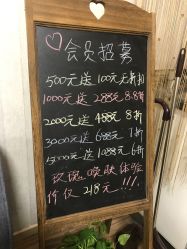 会员招募
500元送100元无折扣
1000元送288元8.8折
2000元送488元8折
3000元送688元7折
5000元送1088元6折
玫瑰嫩肤体验
价仅218元!!!